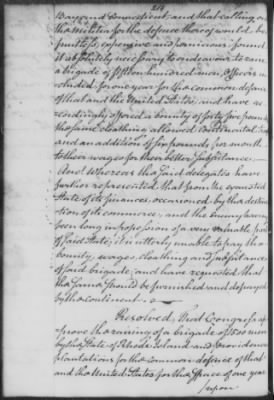 214
Bay and Connecticut, and that calling on
the militia for the defence thereof would be
fruitless, expensive and pernicious found
it absolutely necessary to endeavour to raise
a brigade of fifteen hundred men, officers in
cluded, for one year for the common defence
of that and the United States, and have ac
cordingly offered a bounty of forty five pounds
the same cloathing allowed continental
and an addition of six pounds per month
to their wages for their better subsistance.
And Whereas the said delegates have
further represented that from the exausted
State of its finances, occasioned by the destruc
tion of its commerce, and the enemy having
been long in possession of a very valuable part
of said State, it is utterly unable to pay the
bounty, wages, cloathing and subsistance
of said brigade, and have requested that
the same should be furnished and defrayed
by the continent.
Resolved, That Congress ap
prove the raising of a brigade of 1500 men
by the State of Rhode Island and Providence
Plantations for the common defence of that
and the United States for the space of one year
upon